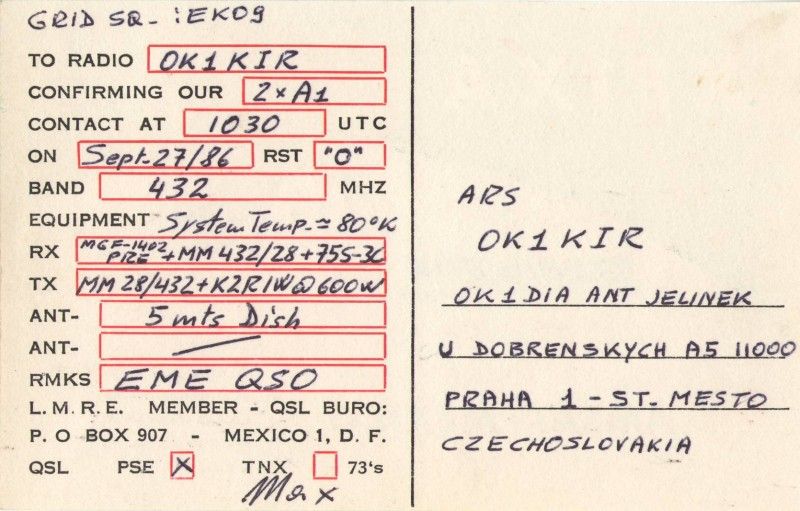 GRID SQ- :EK09
TO RADIO OK1KIR
CONFIRMING OUR 2xA1
CONTACT AT 1030 UTC
ON Sept-27/86 RST "O"
BAND 432 MHZ
EQUIPMENT System Temp-≈80°K
RX MGF-1402 PRE +MM432/28+75S-3C
TX MM28/432+K2RIW@600W
ANT- 5 mts Dish
ANT- —
RMKS EME QSO
L.M.R.E. MEMBER - QSL BURO:
P. O BOX 907 - MEXICO 1, D. F.
QSL PSE X TNX 73's
Max
ARS
OK1KIR
OK1DIA ANT JELINEK
U DOBRENSKYCH A5 11000
PRAHA 1-ST. MESTO
CZECHOSLOVAKIA